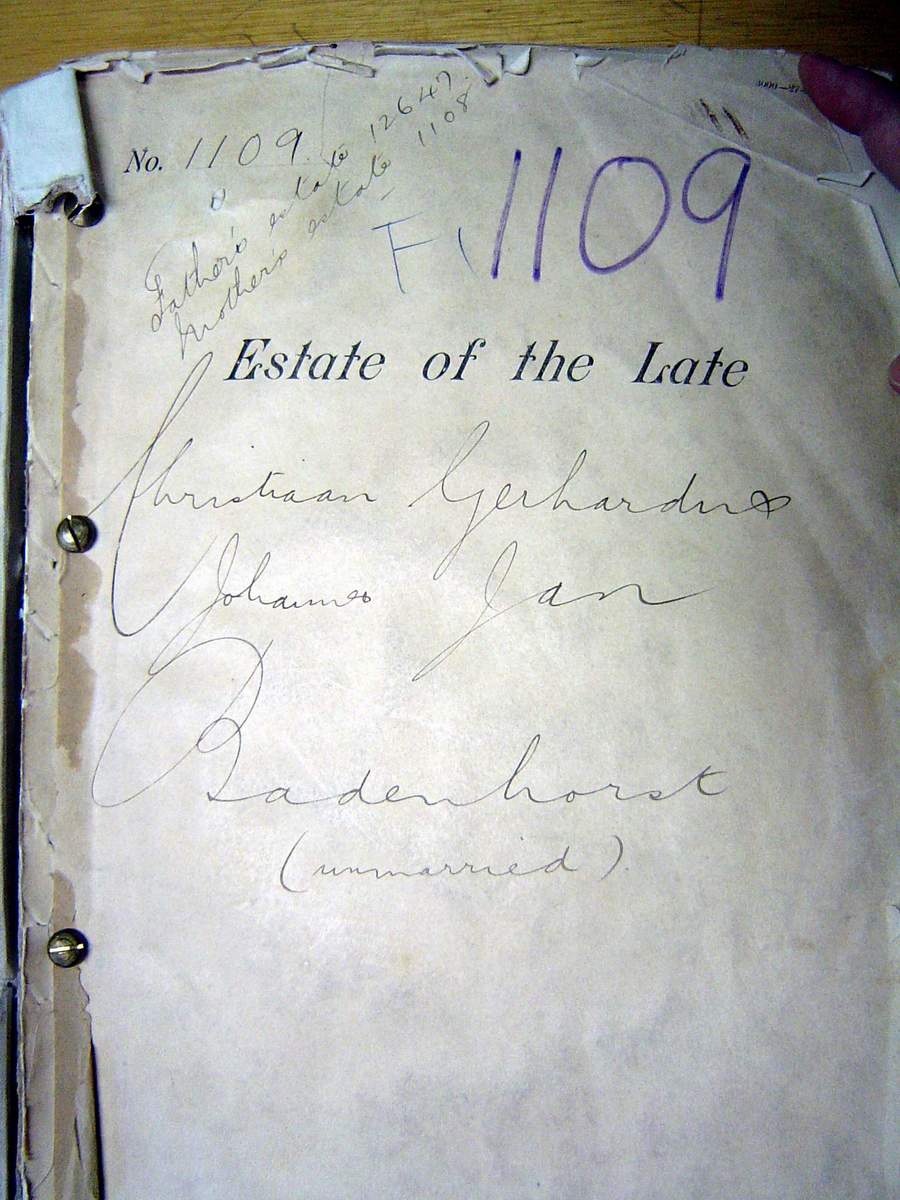 No. 1109.
Father's estate 12647.
Mother's estate 1108
F 1109
Estate of the Late
Christiaan Gerhardus
Johannes Jan
Badenhorst
(unmarried)